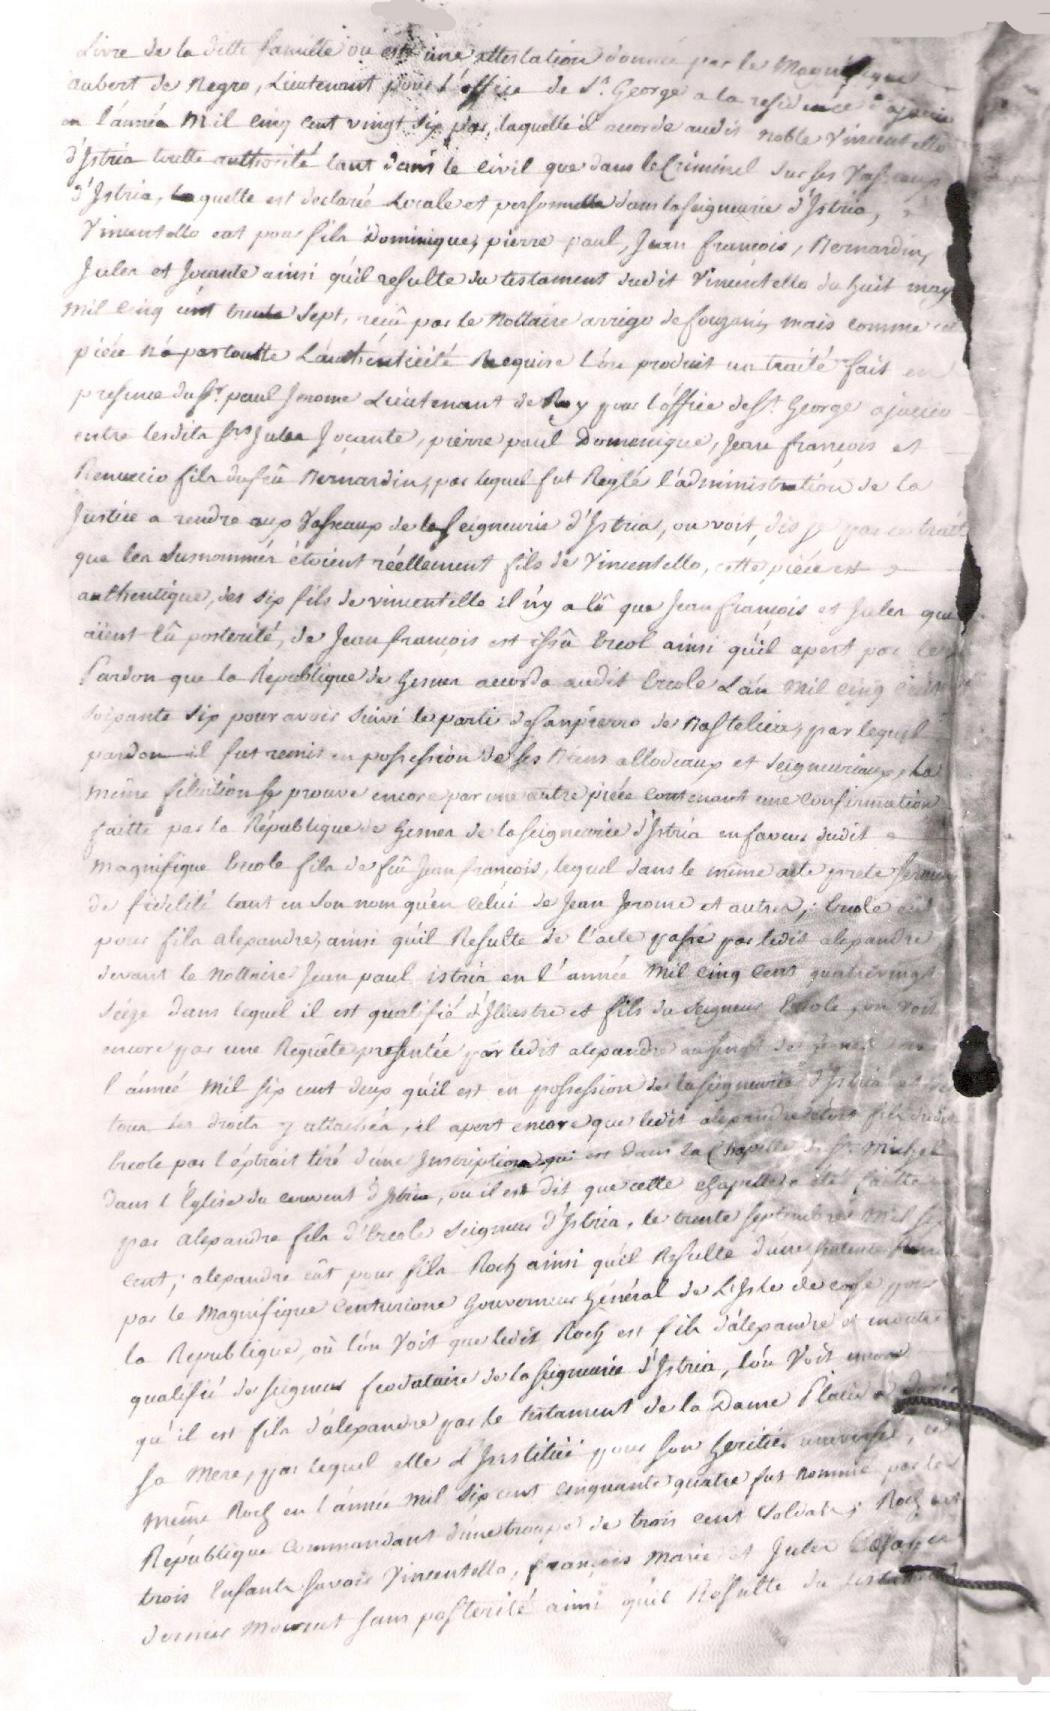 Livre de la ditte famille ou est une attestation donnée par le Magnifique
aubert de Negro, Lieutenant pour l'office de St. George a la residence d'ajaccio
en l'année Mil cinq cent vingt six par laquelle il accorde audit noble Vincentello
d'Istria toutte authorité tant dans le civil que dans le Criminel sur ses Vasseaux
d'Istria, laquelle est declarée Locale et personnelle dans la seigneurie d'Istria,
Vincentello eut pour fils Dominique, pierre paul, Jean françois, Bernardin,
Jules et Jocante ainsi qu'il resulte du testament dudit Vincentello du huit may
Mil cinq cent trente sept, reçû par le Nottaire arrigo de mais comme cet
piéce n'a pas toutte L'authenticité Requise l'on produit un traité fait en
presence du Sr. paul Jerome Lieutenant de Roy pour l'office de St. George ajaccio
entre lesdits Srs Jules Jocante, pierre paul Domenique, Jean françois et
Renuccio fils du feû Bernardin, par lequel fut Reglé l'administration de la
Justice a rendre aux Vasseaux de la Seigneurie d'Istria, on voit, dis je par ce traité
que les Susnommés étoient réellement fils de Vincentello, cette piéce est
authentique, des six fils de vincentello il n'y a eû que Jean françois et Jules que
aient eû posterité, de Jean françois est issû Ercol ainsi qu'il apert par le
Pardon que la République de Gesnes accorda audit Ercole L'an Mil cinq cent
soixante six pour avoir suivi le parti de Sanpierro de Bastelica, par lequel
pardon il fut remis en possession de ses Biens allodeaux et Seigneuriaux, La
même filiation se prouve encore par une autre piéce contenant une confirmation
faitte par la République de Gesnes de la seigneurie d'Istria en faveur dudit
Magnifique Ercole fils de feû Jean françois, lequel dans le même acte prete serment
de fidelité tant en son nom qu'en celui de Jean Jerome et autres; Ercole eut
pour fils alexandre, ainsi qu'il Resulte de l'acte passé par ledit alexandre
devant le Nottaire Jean paul istria en l'année Mil cinq cens quatrevingt
seize dans lequel il est qualifié d'Illustre et fils du Seigneur Ercole, on voit
encore par une Requête presentée par ledit alexandre au
l'année Mil six cent deux qu'il est en possession de la seigneurie d'Istria et de
tous les droits y attachés, il apert encore que ledit alexandre étoit fils dudit
Ercole par l'extrait tiré d'une Inscription qui est dans la Chapelle de St. Michel
dans l'Eglise du couvent d'Istria, ou il est dit que cette chapelle a été faitte
par alexandre fils d'Ercole Seigneur d'Istria, le trente septembre Mil six
cent; alexandre eût pour fils Roch ainsi qu'il Resulte d'une
par le Magnifique Centurione Gouverneur Général de L'Isle de corse pour
la Republique, où l'on Voit que ledit Roch est fils d'alexandre et en outre
qualifié de Seigneur feodataire de la Seigneurie d'Istria, l'on Voit encore
qu'il est fils d'alexandre par le testament de la Dame
sa Mere, par lequel elle l'Institüe pour son heritier universel, ce
même Roch en l'année Mil six cent cinquante quatre fut nommé par la
République Commandant d'une troupe de trois cent Soldats; Roch eut
trois Enfants savoir Vincentello, françois Marie et Jules
dernier Mourut sans posterité ainsi qu'il Resulte du testament